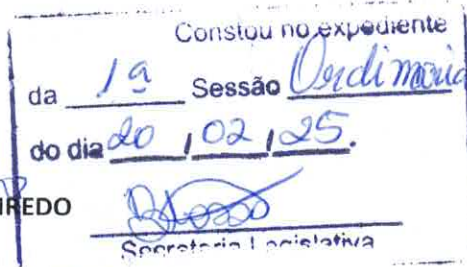 Constou no expediente
da 1ª Sessão Ordinária
do dia 20 / 02 / 25.
IREDO
Secretaria Legislativa